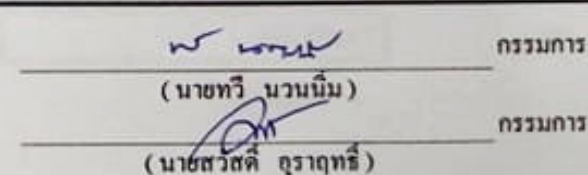 กรรมการ
(นายทวี นวนนิ่ม)
กรรมการ
(นายสวัสดิ์ อุราฤทธิ์)